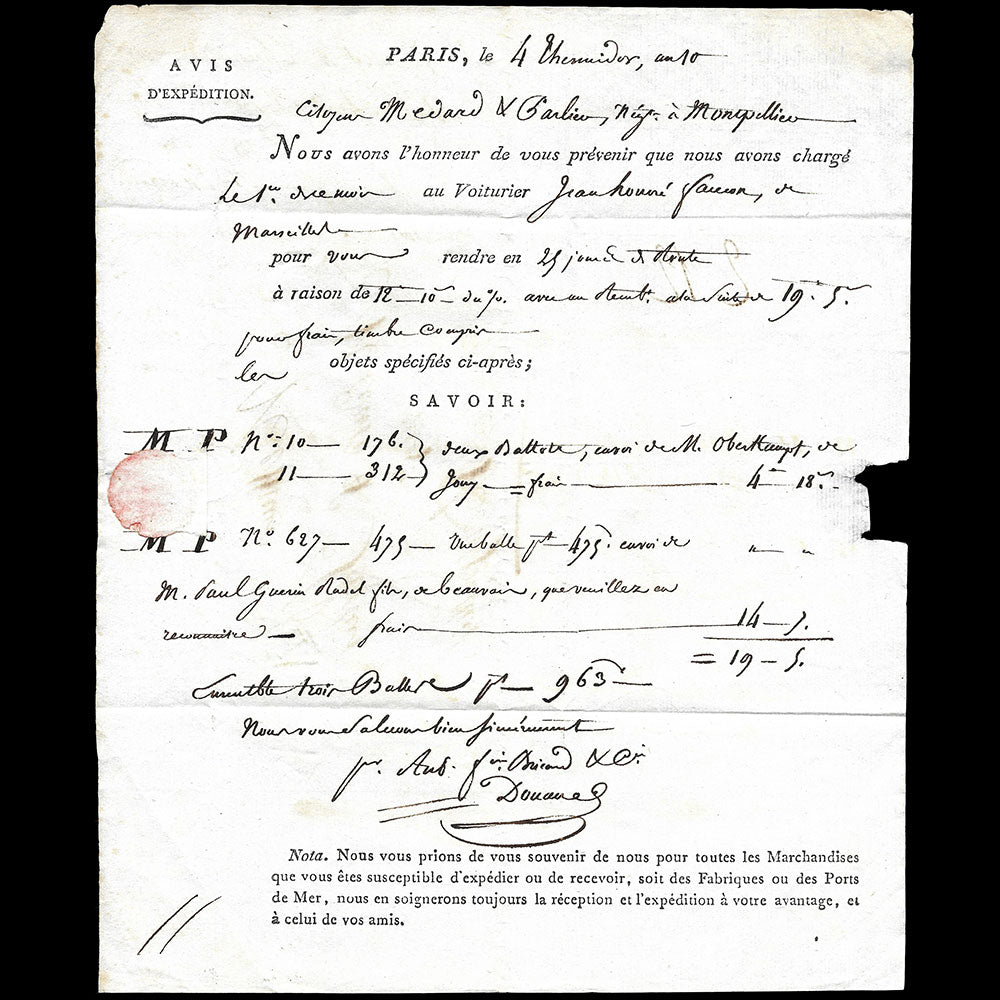 AVIS
D'EXPÉDITION.
PARIS, le 4 Thermidor, an 10
Citoyens Medard & Parlier, Négts. à Montpellier
Nous avons l'honneur de vous prévenir que nous avons chargé
Le 1er. de ce mois au Voiturier Jean honoré faucon, de
Marseille
pour vous rendre en 25 jours de Route
à raison de 12 10 du % avec un Rembt. à la Suite de 19 5
pour frais, timbre Compris
les objets spécifiés ci-après;
SAVOIR:
M P Nos. 10 176 } deux Ballots, envoi de M. Oberkampf, de
11 312 } Jouy = frais 4 18
M P No. 627 475 Une balle pt 475 envoi de " "
M. Paul Guerin fils, de beauvais, que veuillez en
reconnaitre frais 14 7.
= 19 5.
Ensemble trois Balles pt 963
Nous vous Saluons bien sincérement
pr. Ant. & Cie.
Douane
Nota. Nous vous prions de vous souvenir de nous pour toutes les Marchandises
que vous êtes susceptible d'expédier ou de recevoir, soit des Fabriques ou des Ports
de Mer, nous en soignerons toujours la réception et l'expédition à votre avantage, et
à celui de vos amis.